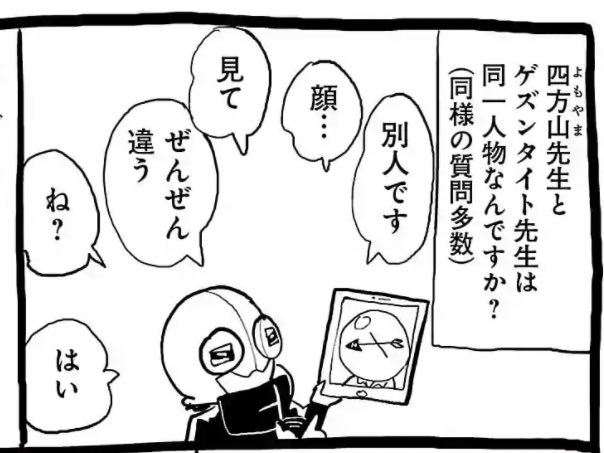 四方山先生と
よもやま
ゲズンタイト先生は
同一人物なんですか?
(同様の質問多数)
別人です
顔…
見て
ぜんぜん
違う
ね?
はい